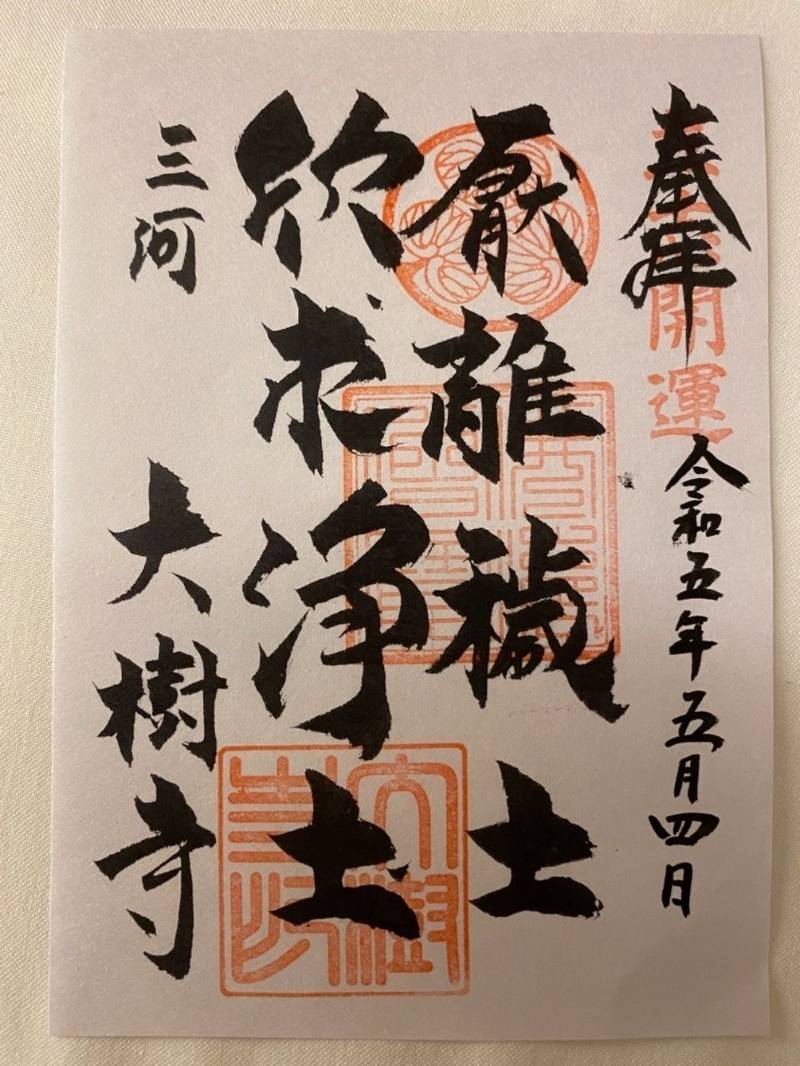 奉拝
開運
令和五年五月四日
厭離穢土
欣求浄土
三河
大樹寺
大樹寺印